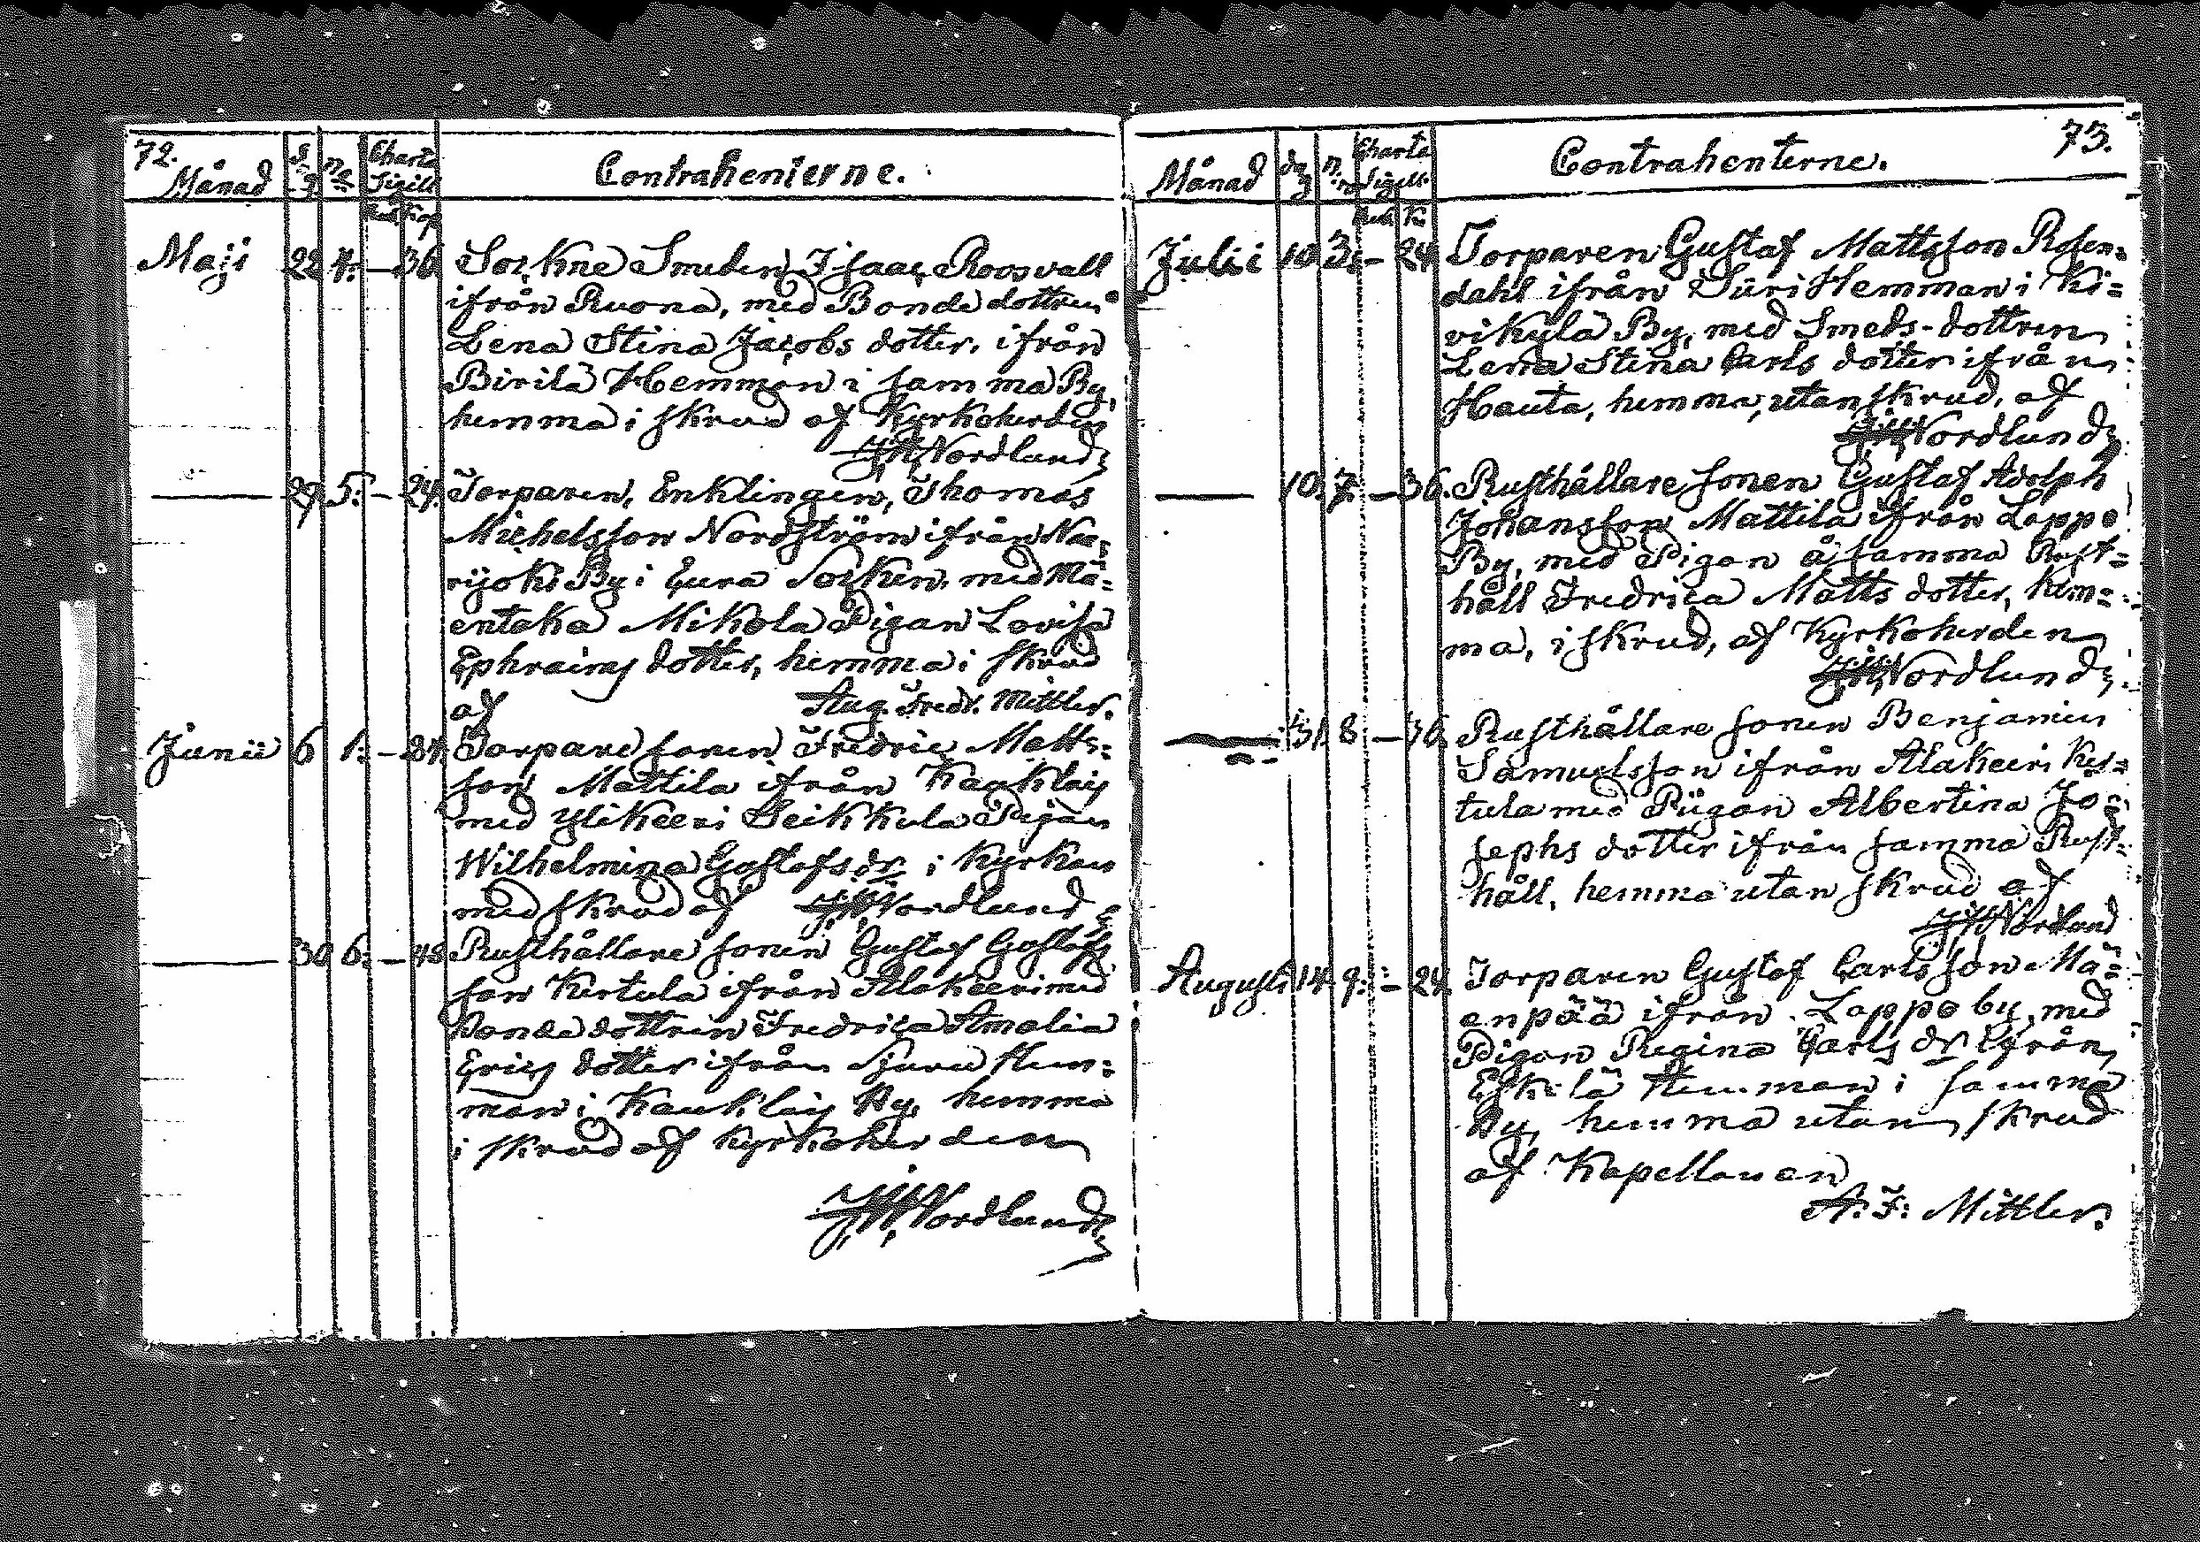 72.
Månad
Dag
No
Charta
Sigill
Contrahenterne.
Rub. Kop.
Maji 22 4: — 36 Sockne Smeden Isaac Roosvall
ifrån Ruona, med Bonde dottren
Lena Stina Jacobs dotter, ifrån
Birilä Hemman i samma By,
hemma i skrud af Kyrkoherden
Nordlund
— 29 5: — 24. Torparen, Enklingen, Thomas
Michelsson Nordström ifrån Na-
rijoki By i Eura Socken, med Mä=
entaka Mikola Pigan Lovisa
Ephraims dotter, hemma i skrud
af Aug. Fredr. Mittler.
Junii 6 1: — 24. Torpare sonen Fredric Matts=
son Mattila ifrån Kauklais
med Ylikeeri Seikkula Pigan
Wilhelmina Gustafs dr i Kyrkan
med skrud af Nordlund
— 30 6: — 48 Rusthållare sonen Gustaf Gustafs
son Kestula ifrån Alakeeri med
Bonde dottren Fredrica Amalia
Erics dotter ifrån Sjuru Hem=
man i Kauklais By, hemma
i skrud af Kyrkoherden
Nordlund
73.
Månad
dag
n:ro
Charta
Sigill.
Contrahenterne.
Rub. K.
Julii 10 3. — 24 Torparen Gustaf Mattsson Rosen=
dahl ifrån Süri Hemman i Ki=
vikylä By, med Smeds-dottren
Lena Stina Carls dotter ifrån
Hauta, hemma, utan skrud, af
Nordlund
— 10. 7. — 36. Rusthållare sonen Gustaf Adolph
Johansson Mattila ifrån Lappo
By, med Pigan å samma Rust=
håll Fredrica Matts dotter, hem=
ma, i skrud, af Kyrkoherden
Nordlund
— 31. 8 — 36. Rusthållare sonen Benjamin
Samuelsson ifrån Alakeeri Kes=
tula med Pigan Albertina Jo=
sephs dotter ifrån samma Rust=
håll, hemma utan skrud af
Nordlund
Augusti 14. 9: — 24. Torparen Gustaf Carlsson Mä=
enpää ifrån Lappo by, med
Pigan Regina Carls dr ifrån
Eskilä Hemman i samma
By, hemma utan skrud
af Kapellanen
A. F: Mittler.